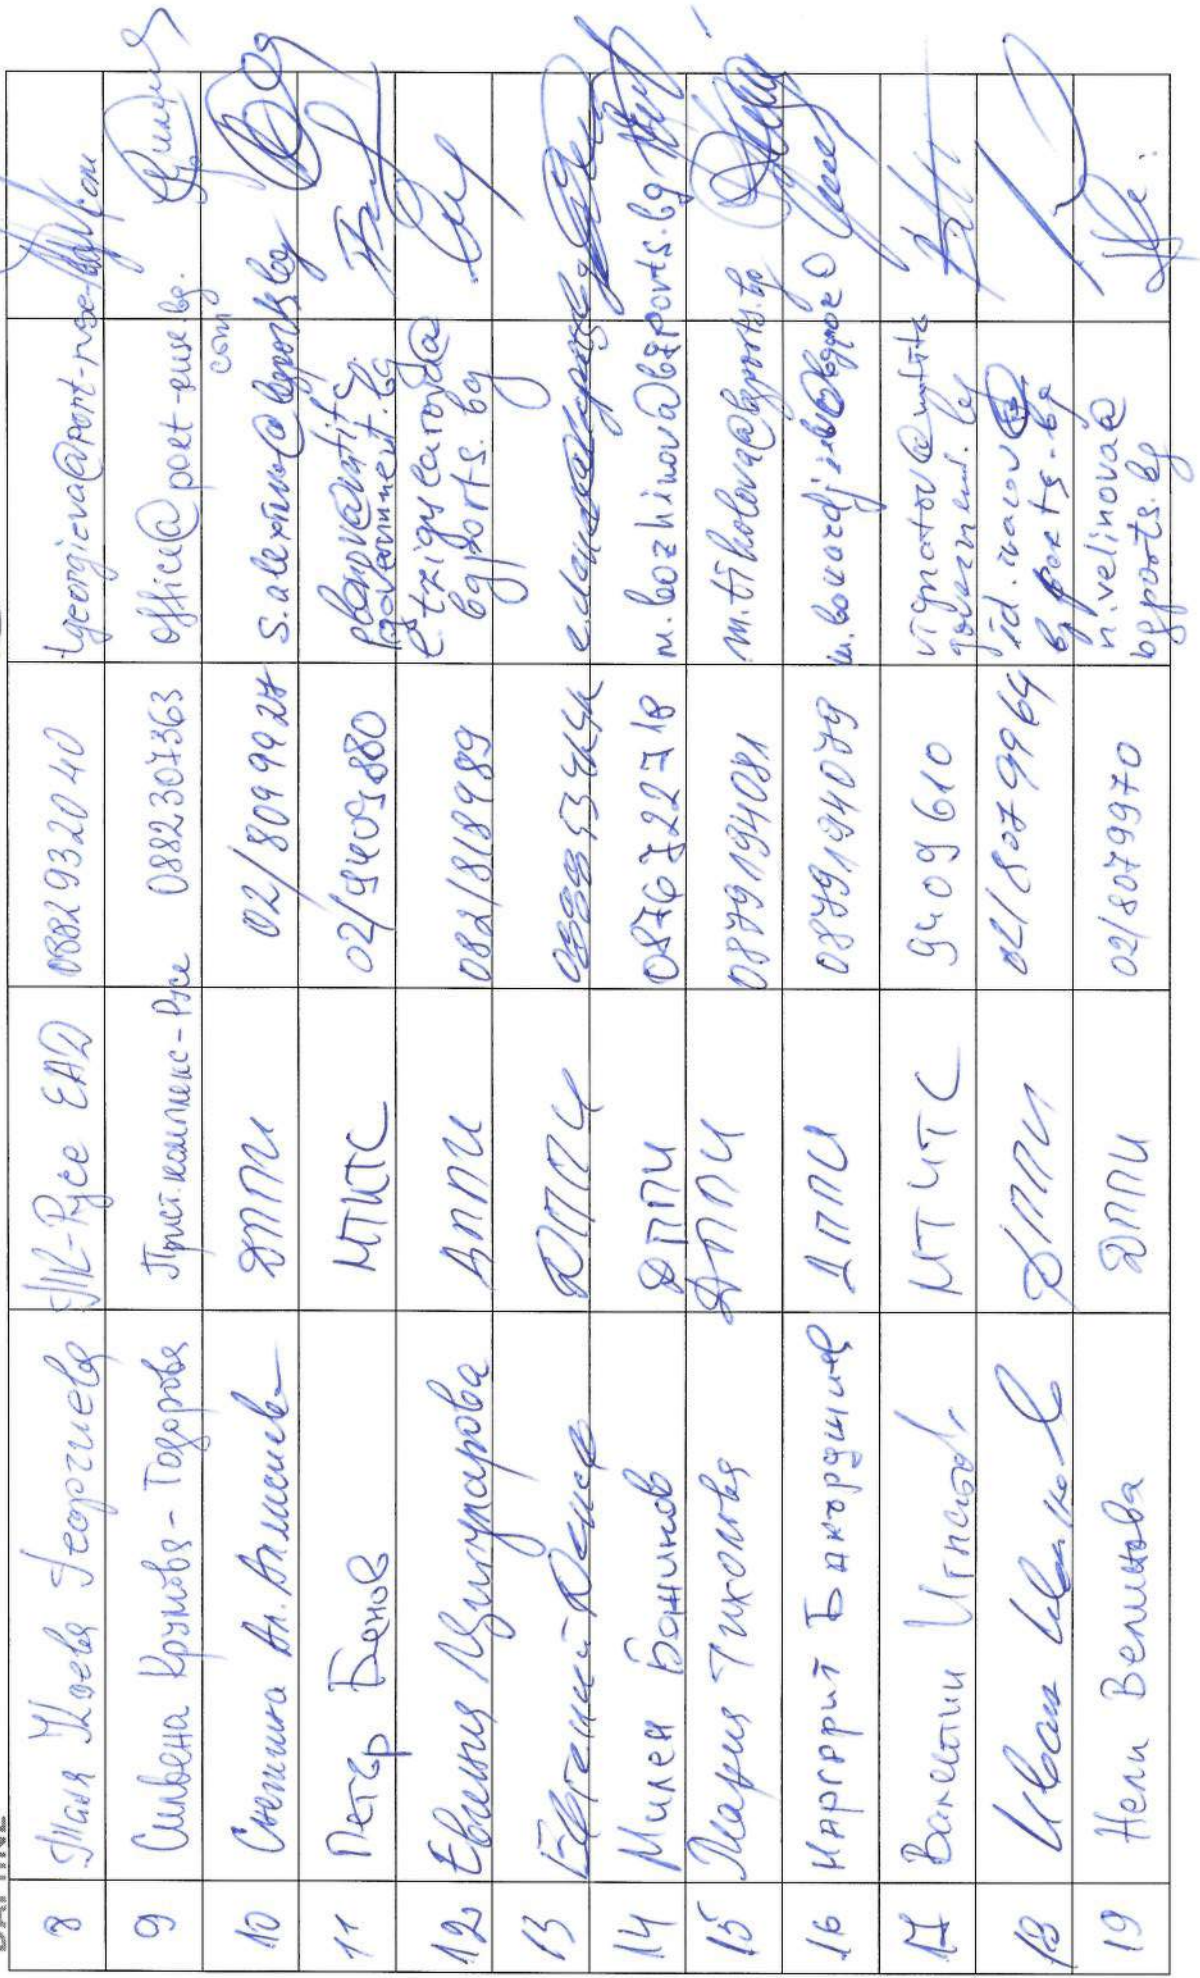 8 Таня Колева Георгиева ПК-Русе ЕАД 0882932040
9 Силвена Крумова-Тодорова Прист. комплекс-Русе 0882307363 office@port-ruse.bg.
com
10 Снежина Ал. Алексиева ДППИ 02/8099927
11 Петър Банов МТИТС 02/9409880
government.bg
12 Евгения Цигуларова ДППИ 082/818989 e.tzigularova@
bgports.bg
13 Евгений ДППИ
14 Милен Божинов ДППИ 0876722718 m.bozhinov@bgports.bg
15 Мария Тихолова ДППИ 0879194081 m.tiholova@bgports.bg
16 Маргарит ДППИ 0879194079
17 Валентин Игнатов МТИТС 9409610 vignatov@mtitc.
government.bg
18 Иван Иванов ДППИ 02/8079964 id.ivanov@
bgports.bg
19 Нели Велинова ДППИ 02/8079970 n.velinova@
bgports.bg